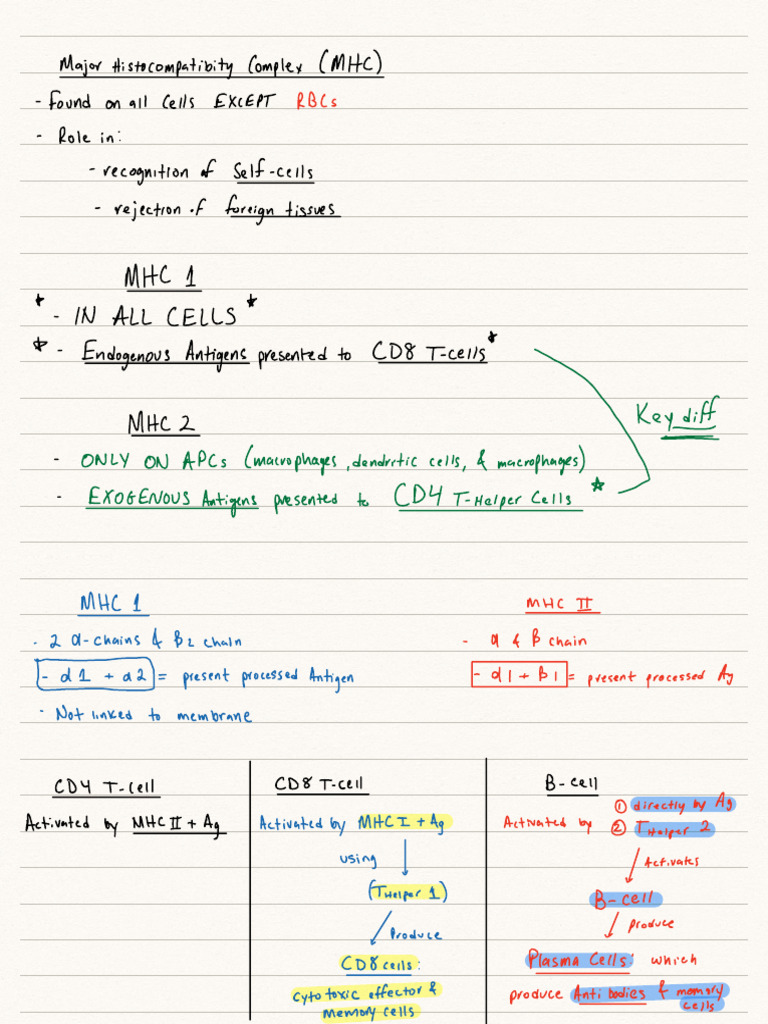 Major Histocompatibity Complex (MHC)
- Found on all Cells EXCEPT RBCs
- Role in:
- recognition of Self-cells
- rejection of foreign tissues
MHC 1
* - IN ALL CELLS *
* - Endogenous Antigens presented to CD8 T-cells *
Key diff
MHC 2
- ONLY ON APCs (macrophages, dendritic cells, & macrophages)
- EXOGENOUS Antigens presented to CD4 T-Helper Cells *
MHC 1
- 2 α-chains & β2 chain
- α1 + α2 = present processed Antigen
- Not linked to membrane
MHC II
- α & β chain
- α1 + β1 = present processed Ag
CD4 T-cell
Activated by MHC II + Ag
CD8 T-cell
Activated by MHC I + Ag
using
(T Helper 1)
Produce
CD8 cells:
cytotoxic effector &
memory cells
B-cell
Activated by
① directly by Ag
② T Helper 2
Activates
B-cell
Produce
Plasma Cells: which
produce Antibodies & memory
cells